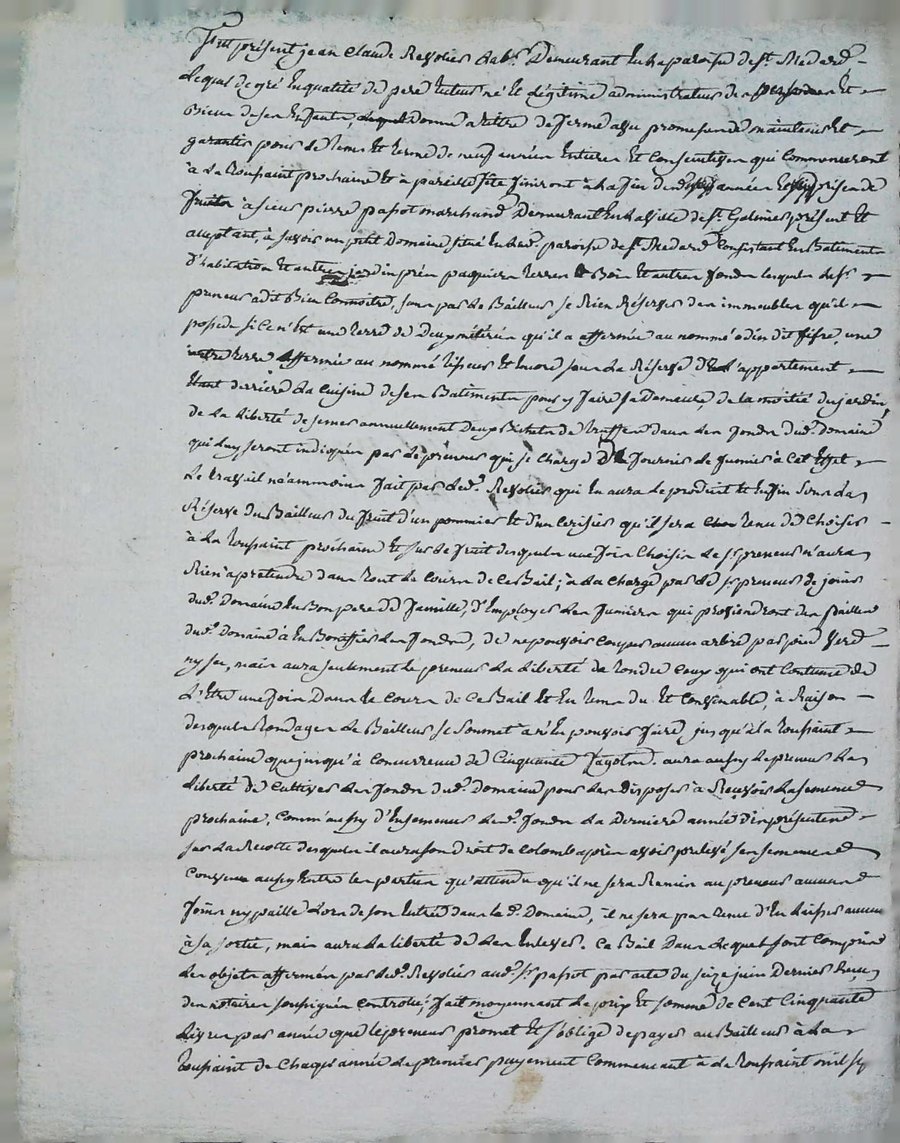 Fut présent jean Claude Ressolier hab.t Demeurant En la paroisse de s.t Medard
Lequel de gré En qualité de pere tuteur né Et Légitime administrateur des personnes Et
Biens de ses Enfants, donne a tittre de ferme assu promesse de maintenir Et
garantir pour Le tems Et terme de neuf années Entieres Et Consecutives qui Commenceront
à La Toussaint prochaine Et à pareille fête finiront à La fin des années Et prises de
fruits à sieur pierre passot marchand Demeurant En La Ville de s.t Galmier présent Et
acceptant, à sçavoir un petit Domaine situé En lad.e paroisse de s.t Medard Consistant En Batiments
d'habitation Et autres jardin prés paquiers terres Bois Et autres fonds lesquels led.s.r
preneur a dit Bien Connoitre, sans par Le Bailleur se Rien Réserver des immeubles qu'il
possede si Ce n'est une terre de Deux méterées qu'il a affermée au nommé odin dit fifre, une
autre terre affermée au nommé Et Encore sous La Réserve de L'appartement
Etant derriére La Cuisine de ses Batiments pour y faire sa Demeure, de La moitié du jardin,
de La Liberté de semer annuellement Deux Bichets de truffes dans Les fonds dud.t domaine
qui Luy seront indiqués par Le preneur qui se Charge De fournir Le fumier à Cet Effet
Le travail néammoins fait par led.t Ressolier qui En aura Le produit Et Enfin sous La
Réserve du Bailleur du fruit d'un pommier Et d'un Cerisier qu'il sera tenu de Choisir
à La Toussaint prochaine Et sur Le fruit desquels une fois Choisis Le s.r preneur n'aura
Rien a pretendre dans tout Le Cours de Ce Bail; à La Charge par Le s.r preneur de jouir
dud.t domaine En Bon pere de famille, d'Employer Les fumiers qui proviendront des pailles
dud.t domaine à En Bonifier Les fonds, de ne pouvoir Couper aucun arbre par pied Verd
ny sec, mais aura seulement Le preneur La Liberté de tondre Ceux qui ont Coutume de
L'Etre une fois Dans Le Cours de Ce Bail Et En tems du Et Convenable, à Raison
desquels tondages Le Bailleur se soumet à n'En pouvoir faire jusqu'à la Toussaint
prochaine que jusqu'à Concurrence de Cinquante fagots. aura aussy Le preneur La
Liberté de Cultiver Les fonds dud.t Domaine pour Les disposer à Recevoir La semence
prochaine, Comm'aussy d'Ensemencer Lesd.s fonds La Derniere année d'Expresente
sur La Recolte desquels il aura son Droit de Colomb après avoir prelevé ses semences
Convenu aussy Entre les parties qu'attendu qu'il ne sera Remis au preneur aucuns
foins ny paille Lors de son Entrée dans le d.t Domaine, il ne sera pas tenu d'En Laisser aucun
à sa sortie, mais aura La liberté de Les Enlever. Ce Bail Dans Lequel sont Compris
Les objets affermés par led.t Ressolier aud.t s.r passot par acte du seize juin Dernier Reçu
des notaires soussignés Controllé; fait moyennant Le prix Et somme de Cent Cinquante
Livres par année que Le preneur promet Et s'oblige de payer au Bailleur à La
Toussaint de Chaque année Le premier payement Commencant à La Toussaint mil sept